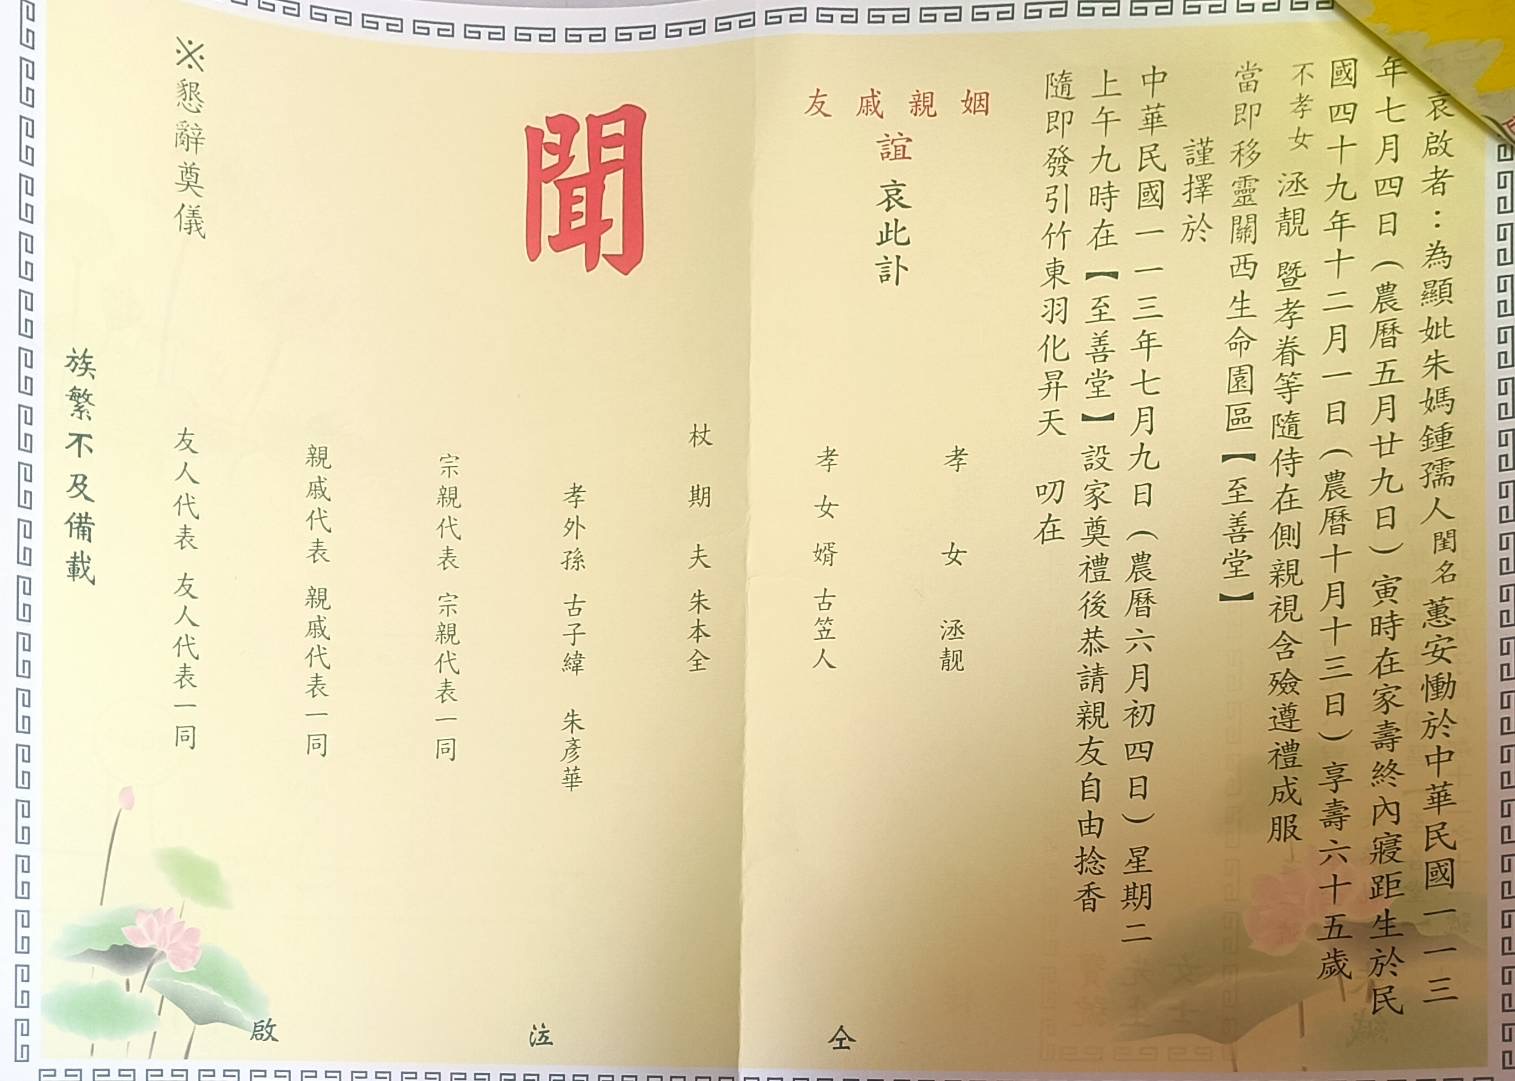 哀啟者：為顯妣朱媽鍾孺人閨名蕙安慟於中華民國一一三
年七月四日（農曆五月廿九日）寅時在家壽終內寢距生於民
國四十九年十二月一日（農曆十月十三日）享壽六十五歲
不孝女 洆靚 暨孝眷等隨侍在側親視含殮遵禮成服
當即移靈關西生命園區【至善堂】
謹擇於
中華民國一一三年七月九日（農曆六月初四日）星期二
上午九時在【至善堂】設家奠禮後恭請親友自由捻香
隨即發引竹東羽化昇天 叨在
姻親戚友
誼 哀此訃
聞
孝女 洆靚
孝女婿 古笠人
杖期夫 朱本全
孝外孫 古子緯 朱彥華
宗親代表 宗親代表一同
親戚代表 親戚代表一同
友人代表 友人代表一同
仝 泣 啟
※懇辭奠儀
族繁不及備載